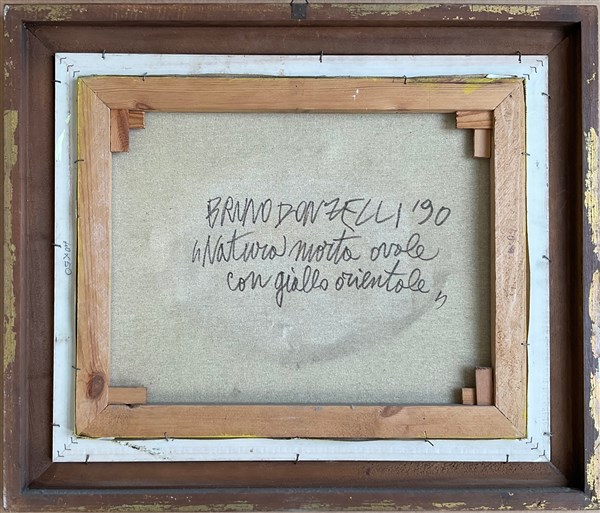 BRUNO DONZELLI '90
"Natura morta ovale
con giallo orientale"